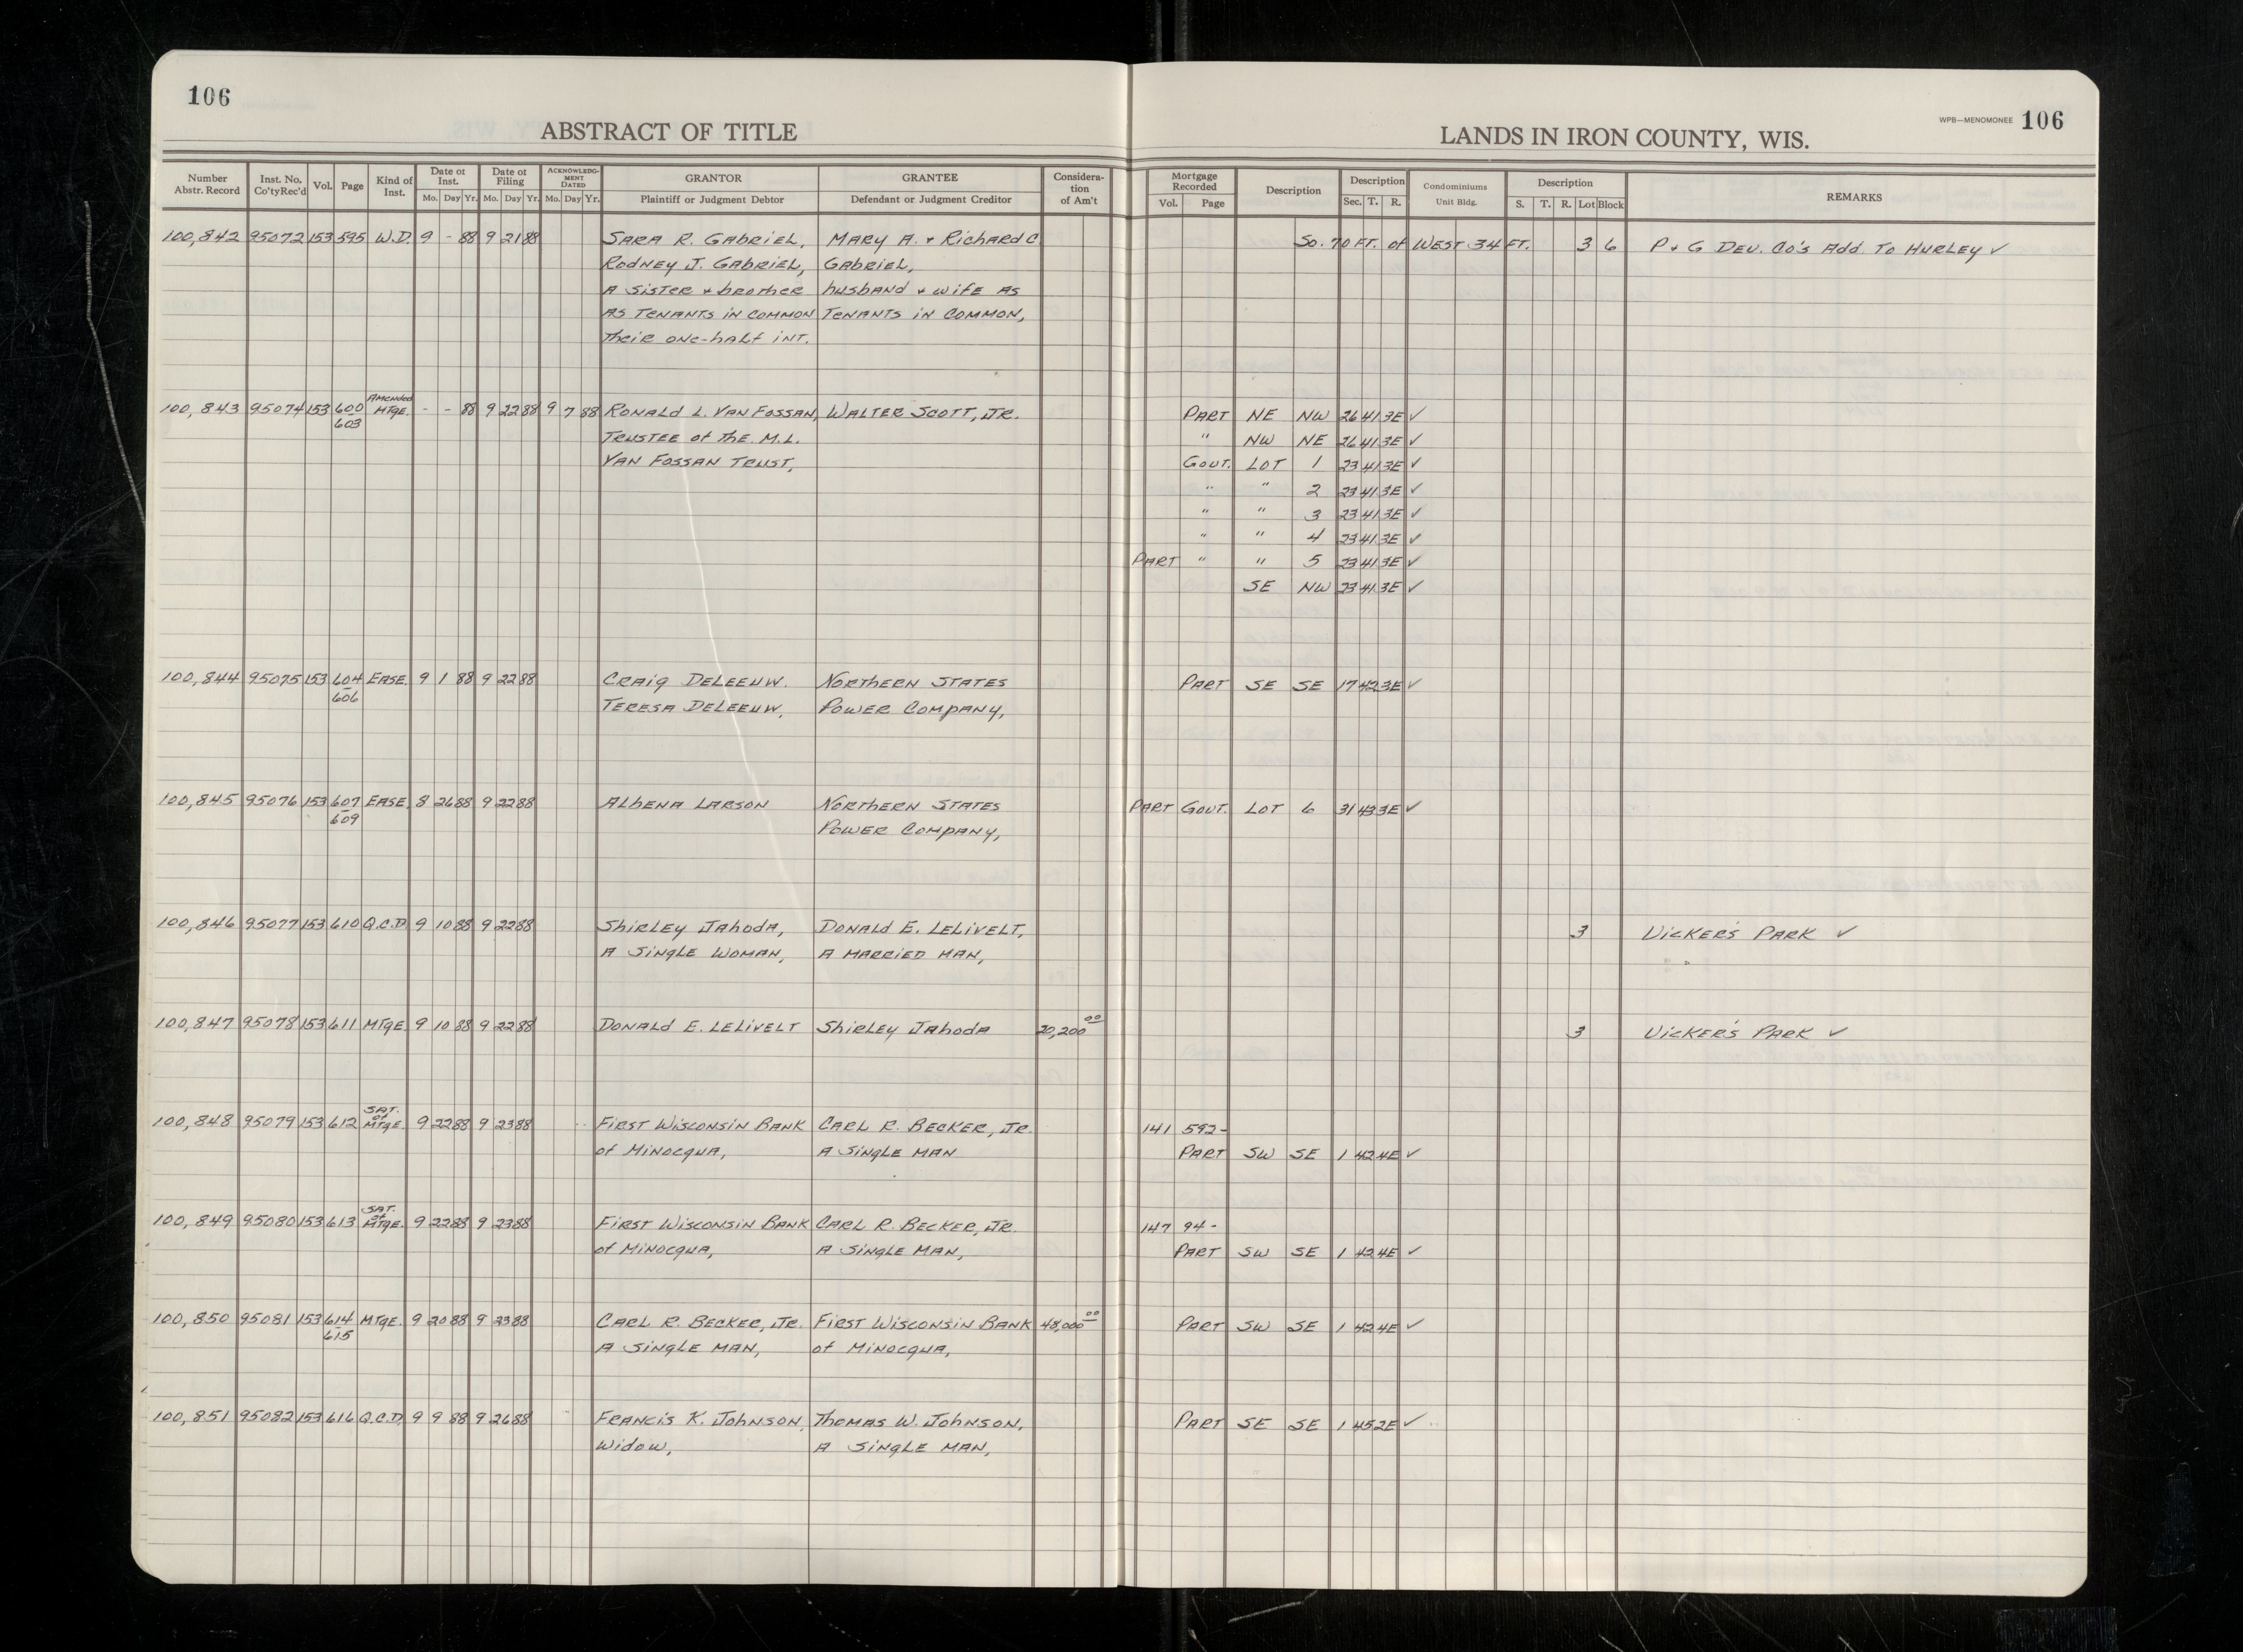 106
ABSTRACT OF TITLE
LANDS IN IRON COUNTY, WIS.
WPB—MENOMONEE 106
Number Abstr. Record | Inst. No. Co'tyRec'd | Vol. | Page | Kind of Inst. | Date of Inst. Mo. Day Yr. | Date of Filing Mo. Day Yr. | ACKNOWLEDGMENT DATED Mo. Day Yr. | GRANTOR Plaintiff or Judgment Debtor | GRANTEE Defendant or Judgment Creditor | Consideration of Am't | Mortgage Recorded Vol. Page | Description | Description Sec. T. R. | Condominiums Unit Bldg. | Description S. T. R. Lot Block | REMARKS
100,842 95072 153 595 W.D. 9 - 88 9 21 88 SARA R. GABRIEL, MARY A. & RICHARD C. So. 70 FT. of WEST 34 FT. 3 6 P & G DEV. Co's Add. To HURLEY ✓
RODNEY J. GABRIEL, GABRIEL,
A SISTER & brother husband & wife AS
AS TENANTS IN COMMON TENANTS IN COMMON,
Their one-half INT.
100,843 95074 153 600 603 Amended MTGE. - - 88 9 22 88 9 7 88 RONALD L. VAN FOSSAN, WALTER SCOTT, JR. PART NE NW 26 41 3E ✓
TRUSTEE of The M.L. " NW NE 26 41 3E ✓
VAN FOSSAN TRUST, GOVT. LOT 1 23 41 3E ✓
" " 2 23 41 3E ✓
" " 3 23 41 3E ✓
" " 4 23 41 3E ✓
PART " " 5 23 41 3E ✓
SE NW 23 41 3E ✓
100,844 95075 153 604 606 EASE. 9 1 88 9 22 88 CRAIG DELEEUW. NORTHERN STATES PART SE SE 17 42 3E ✓
TERESA DELEEUW, POWER COMPANY,
100,845 95076 153 607 609 EASE. 8 26 88 9 22 88 ALBENA LARSON NORTHERN STATES PART GOVT. LOT 6 31 43 3E ✓
POWER COMPANY,
100,846 95077 153 610 Q.C.D. 9 10 88 9 22 88 SHIRLEY JAHODA, DONALD E. LELIVELT, 3 VICKER'S PARK ✓
A SINGLE WOMAN, A MARRIED MAN,
100,847 95078 153 611 MTGE 9 10 88 9 22 88 DONALD E. LELIVELT SHIRLEY JAHODA 20,200 00 3 VICKER'S PARK ✓
100,848 95079 153 612 SAT. of MTGE. 9 22 88 9 23 88 FIRST WISCONSIN BANK CARL R. BECKER, JR. 141 592-
of MINOCQUA, A SINGLE MAN PART SW SE 1 42 4E ✓
100,849 95080 153 613 SAT. of MTGE. 9 22 88 9 23 88 FIRST WISCONSIN BANK CARL R. BECKER, JR. 147 94-
of MINOCQUA, A SINGLE MAN, PART SW SE 1 42 4E ✓
100,850 95081 153 614 615 MTGE. 9 20 88 9 23 88 CARL R. BECKER, JR. FIRST WISCONSIN BANK 48,000 00 PART SW SE 1 42 4E ✓
A SINGLE MAN, of MINOCQUA,
100,851 95082 153 616 Q.C.D. 9 9 88 9 26 88 FRANCIS K. JOHNSON, THOMAS W. JOHNSON, PART SE SE 1 45 2E ✓
Widow, A SINGLE MAN,